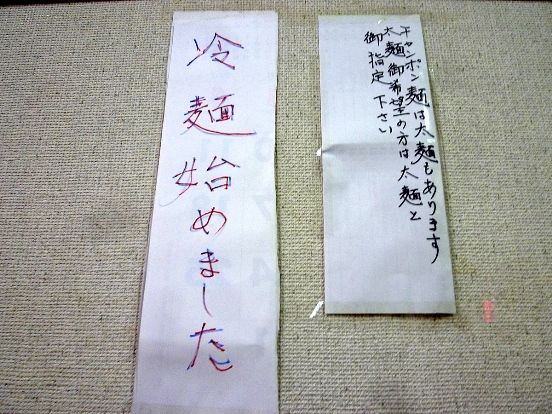 チャンポン麺は太麺もあります
太麺御希望の方は太麺と
御指定下さい
冷麺始めました